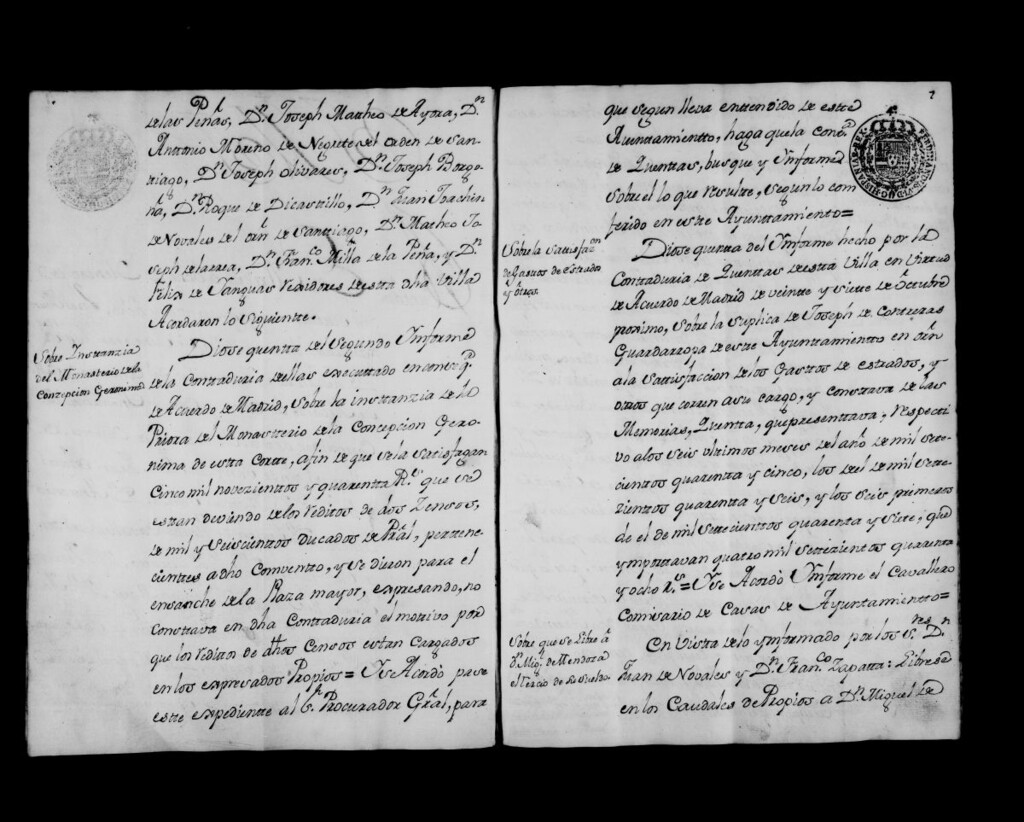 de las Peñas, Dn. Joseph Matheo de Ayrra, Dn.
Anttonio Moreno de Negrete del orden de San-
ttiago, Dn. Joseph olivares, Dn. Joseph Borgo-
ña, Dn. Roque de Dicastillo, Dn. Juan Joachin
de Novales del orn. de Santtiago, Dn. Matheo Jo-
seph de larrea, Dn. Franco. Milla de la Peña, y Dn.
Felix de Yanguas Rexidores de estta dha Villa
Acordaron lo siguientte.
Sobre Insttanzia
del Monasterio de la
Conzepcion Geronima
Diose quentta del Segundo Ynforme
de la Conttaduria de ellas executtado en conseqa.
de Acuerdo de Madrid, sobre la insttanzia de la
Priora del Monastterio de la Concepcion Gero-
nima de estta Cortte, a fin de que se la sattisfagan
cinco mil novezientos y quarentta Rs. que se
esttan deviendo de los reditos de dos Zensos,
de mil y seiscientos ducados de Pral, perttene-
cienttes a dho Combentto, y se dieron para el
ensanche de la Plaza mayor, expresando, no
Consttava en dha Conttaduria el mottivo por
que los reditos de dhos Censos esttan Cargados
en los expresados Propios = Y se Acordò pase
estte expedientte al Sr. Procurador Gral, para
7
que segun lleva enttendido de estte
Ayunttamientto, haga que la Conta.
de Quenttas, busque y Ynforme
sobre el lo que resultte, segun lo con-
ferido en estte Ayunttamientto =
Sobre la Sattisfazon.
de Gasttos de esttrados
y ôttros
Diose quentta del Ynforme hecho por la
Conttaduria de Quenttas de estta Villa en virttud
de Acuerdo de Madrid de veintte y siette de Octtubre
proximo, sobre la suplica de Joseph de Conttreras
Guardarropa de estte Ayunttamientto en orn.
a la sattisfaccion de los Gasttos de esttrados, y
ottros que corren a su cargo, y Consttava de las
Memorias, Quentta, que presenttava, respecti-
vo a los seis ulttimos meses del año de mil sette-
cienttos quarentta y cinco, los del de mil sette-
zienttos quarentta y seis, y los seis primeros
de el de mil settecienttos quarentta y siette, que
ymporttavan quattro mil settezienttos quarentta
y ocho Rs. = Y se Acordò Ynforme el Cavallero
Comisario de Casas de Ayunttamientto =
Sobre que se libre a
Dn. Migl. de Mendoza
el tercio de su sueldo.
En vistta de lo ynformado por los Sres. Dn.
Juan de Novales y Dn. Franco. Zapatta: Librese
en los Caudales de Propios a Dn. Miguel de